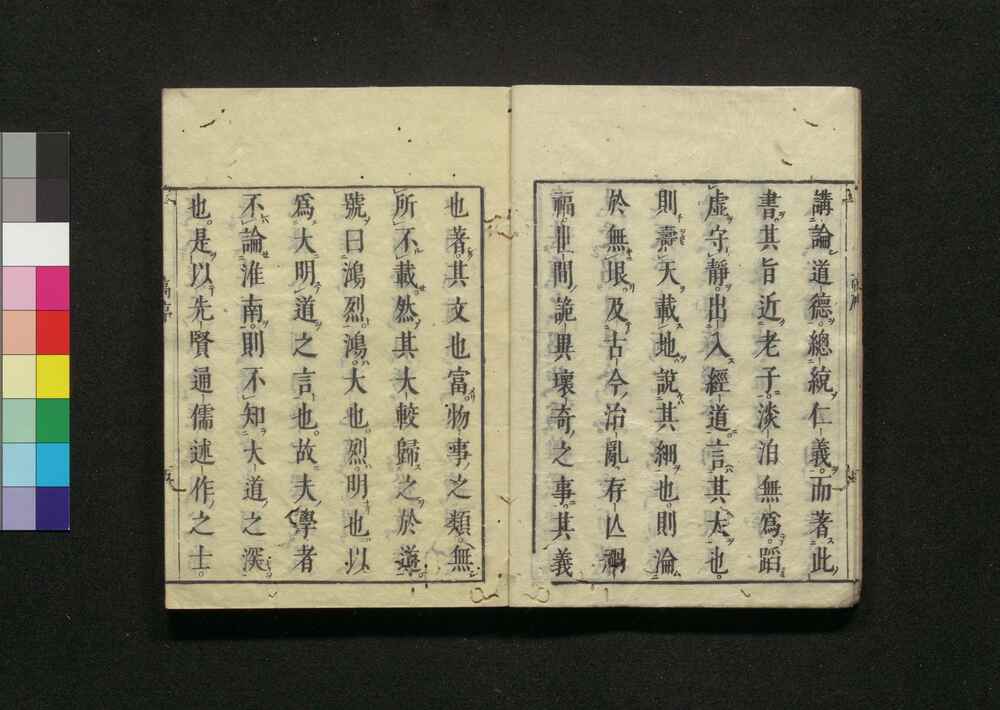 講論道德總統仁義而著此
書其旨近老子淡泊無爲蹈
虛守靜出入經道言其大也
則燾天載地說其細也則淪
於無垠及古今治亂存亾禍
福世間詭異瓌奇之事其義
也著其文也富物事之類無
所不載然其大較歸之於道
號曰鴻烈鴻大也烈明也以
爲大明道之言也故夫學者
不論淮南則不知大道之深
也是以先賢通儒述作之士